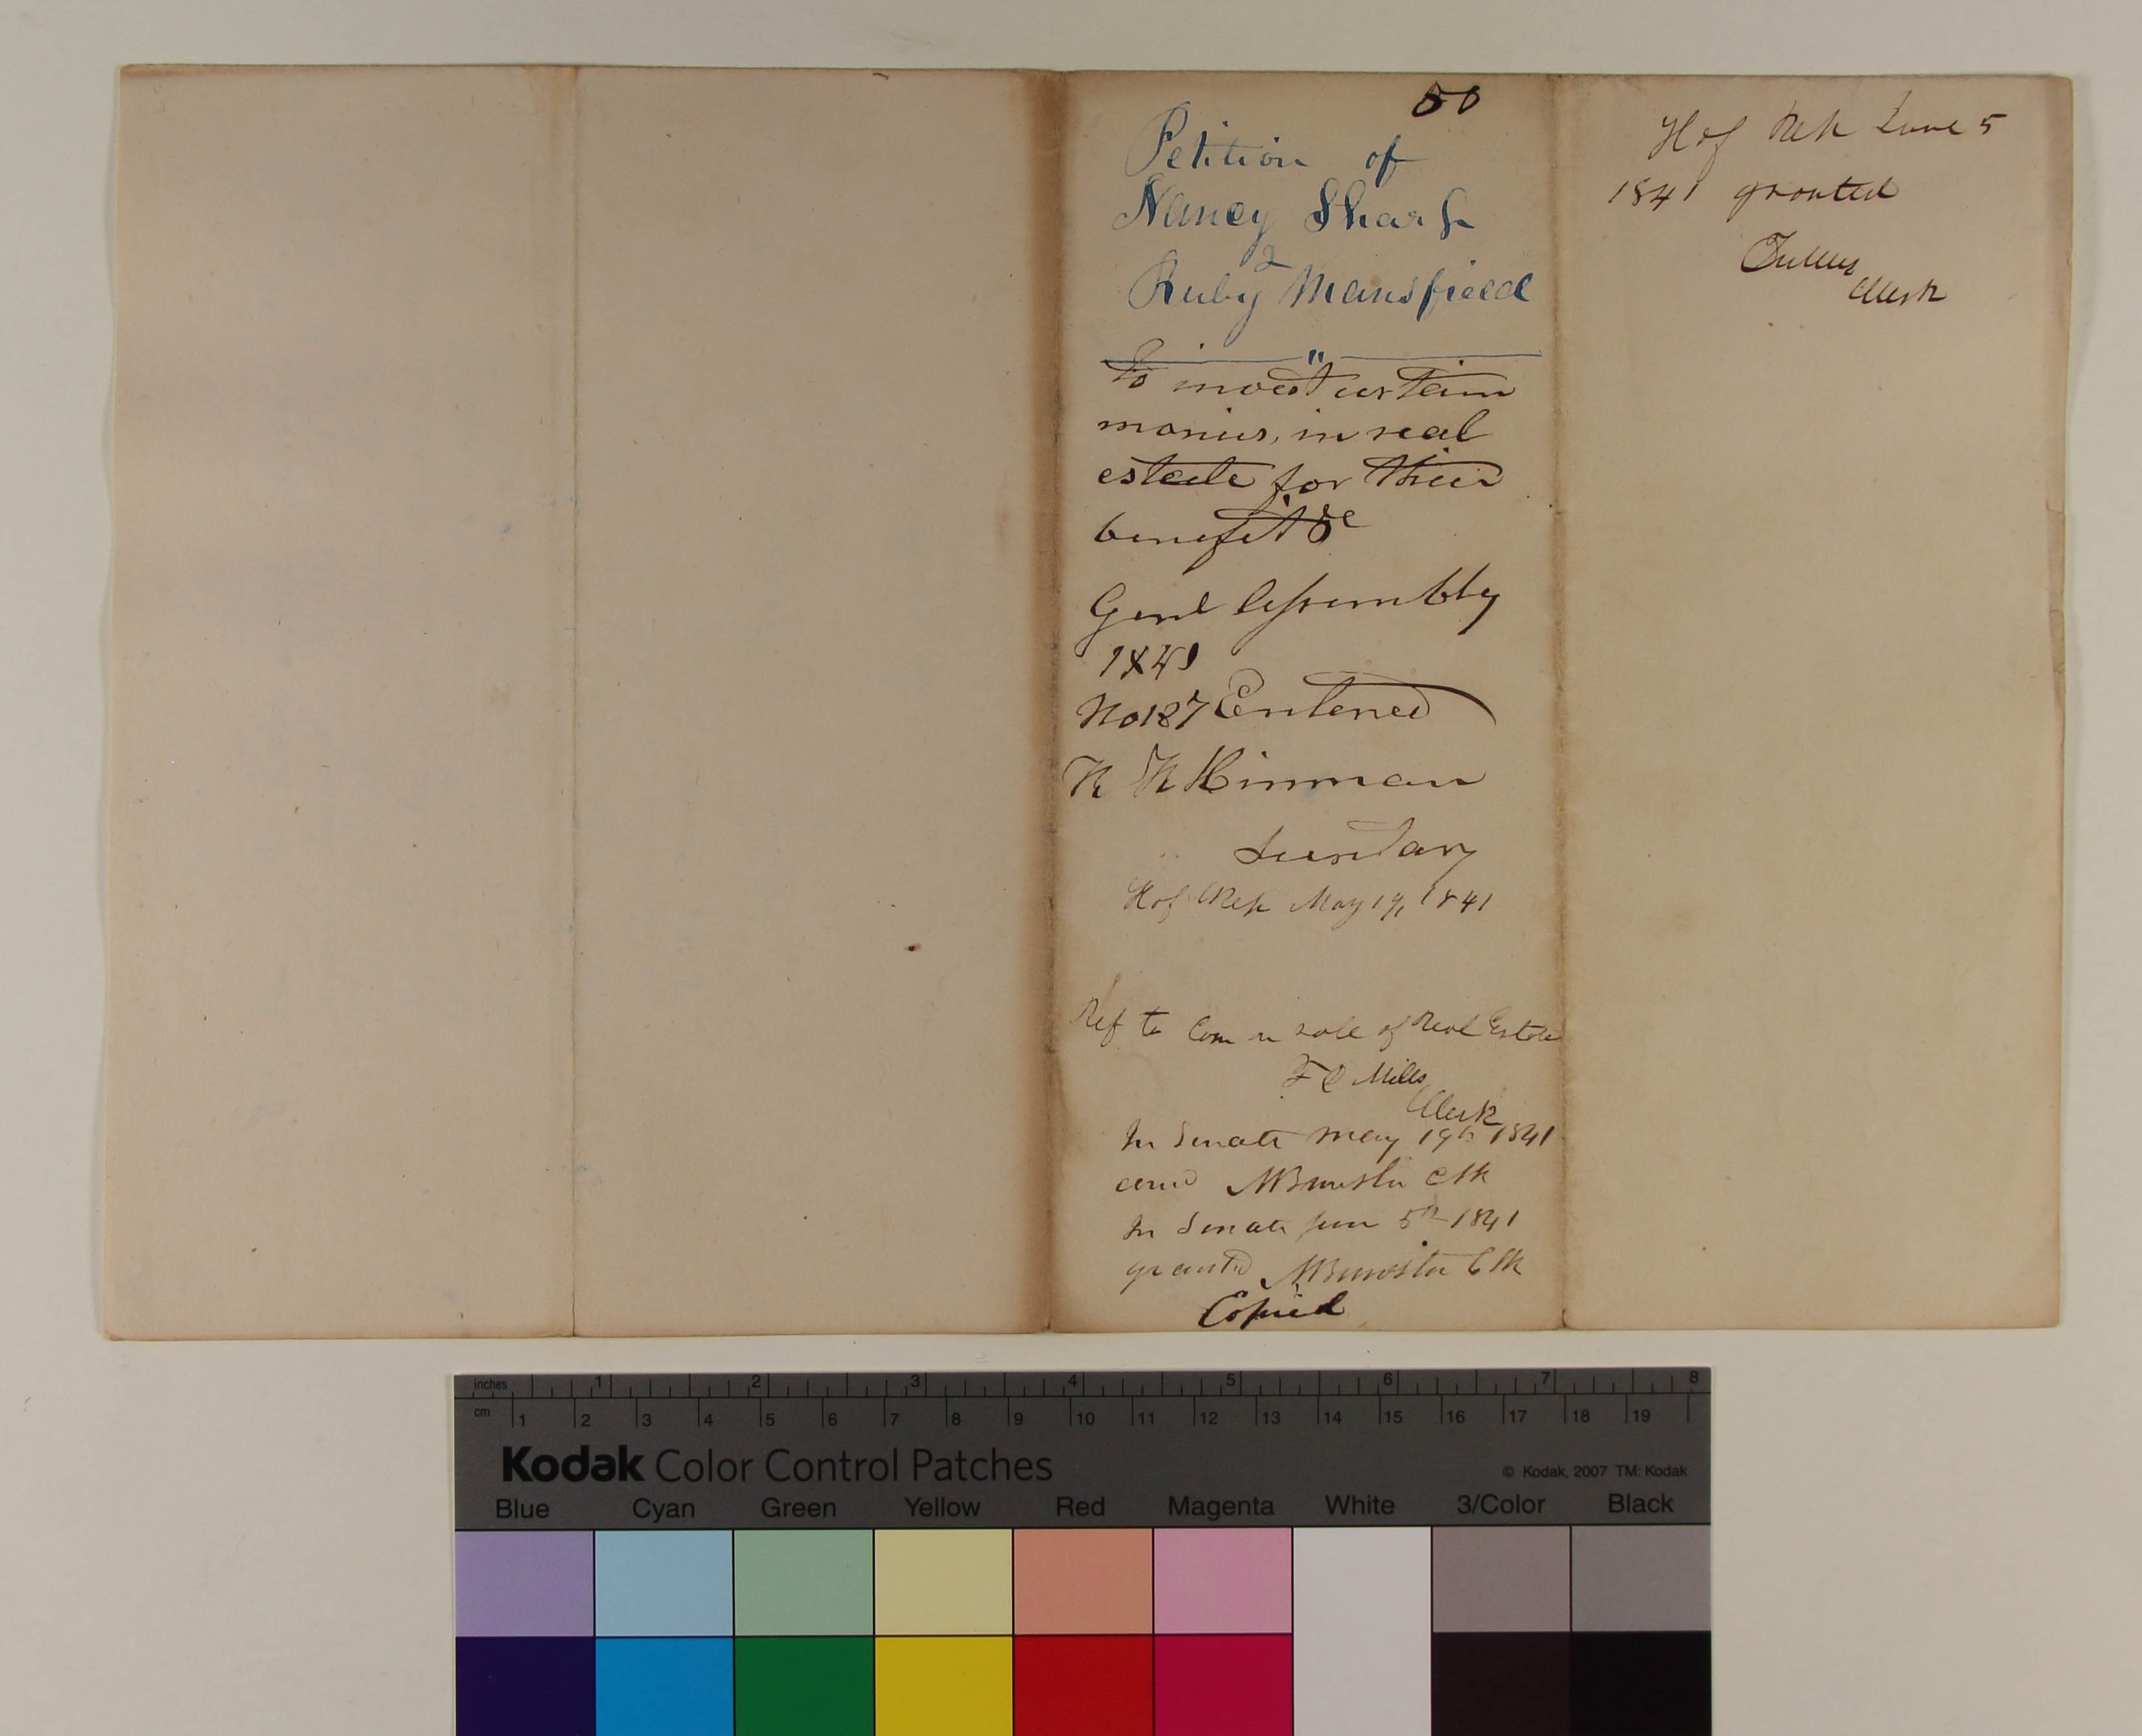 50
Petition of
Nancy Sharp
&
Ruby Mansfield
"
to invest certain
monies, in real
estate for their
benefit &c
Genl Assembly
1841
No 187 Entered
R R Hinman
Secretary
H of Rep May 19, 1841
Ref to Com on sale of Real Estate
F C Mills
Clerk
In Senate May 19th 1841
concd Brewster Clk
In Senate June 5th 1841
granted Brewster Clk
Copied
H of Rep June 5
1841 granted
Fuller
Clerk
inches 1 2 3 4 5 6 7 8
cm 1 2 3 4 5 6 7 8 9 10 11 12 13 14 15 16 17 18 19
Kodak Color Control Patches
© Kodak, 2007 TM: Kodak
Blue Cyan Green Yellow Red Magenta White 3/Color Black